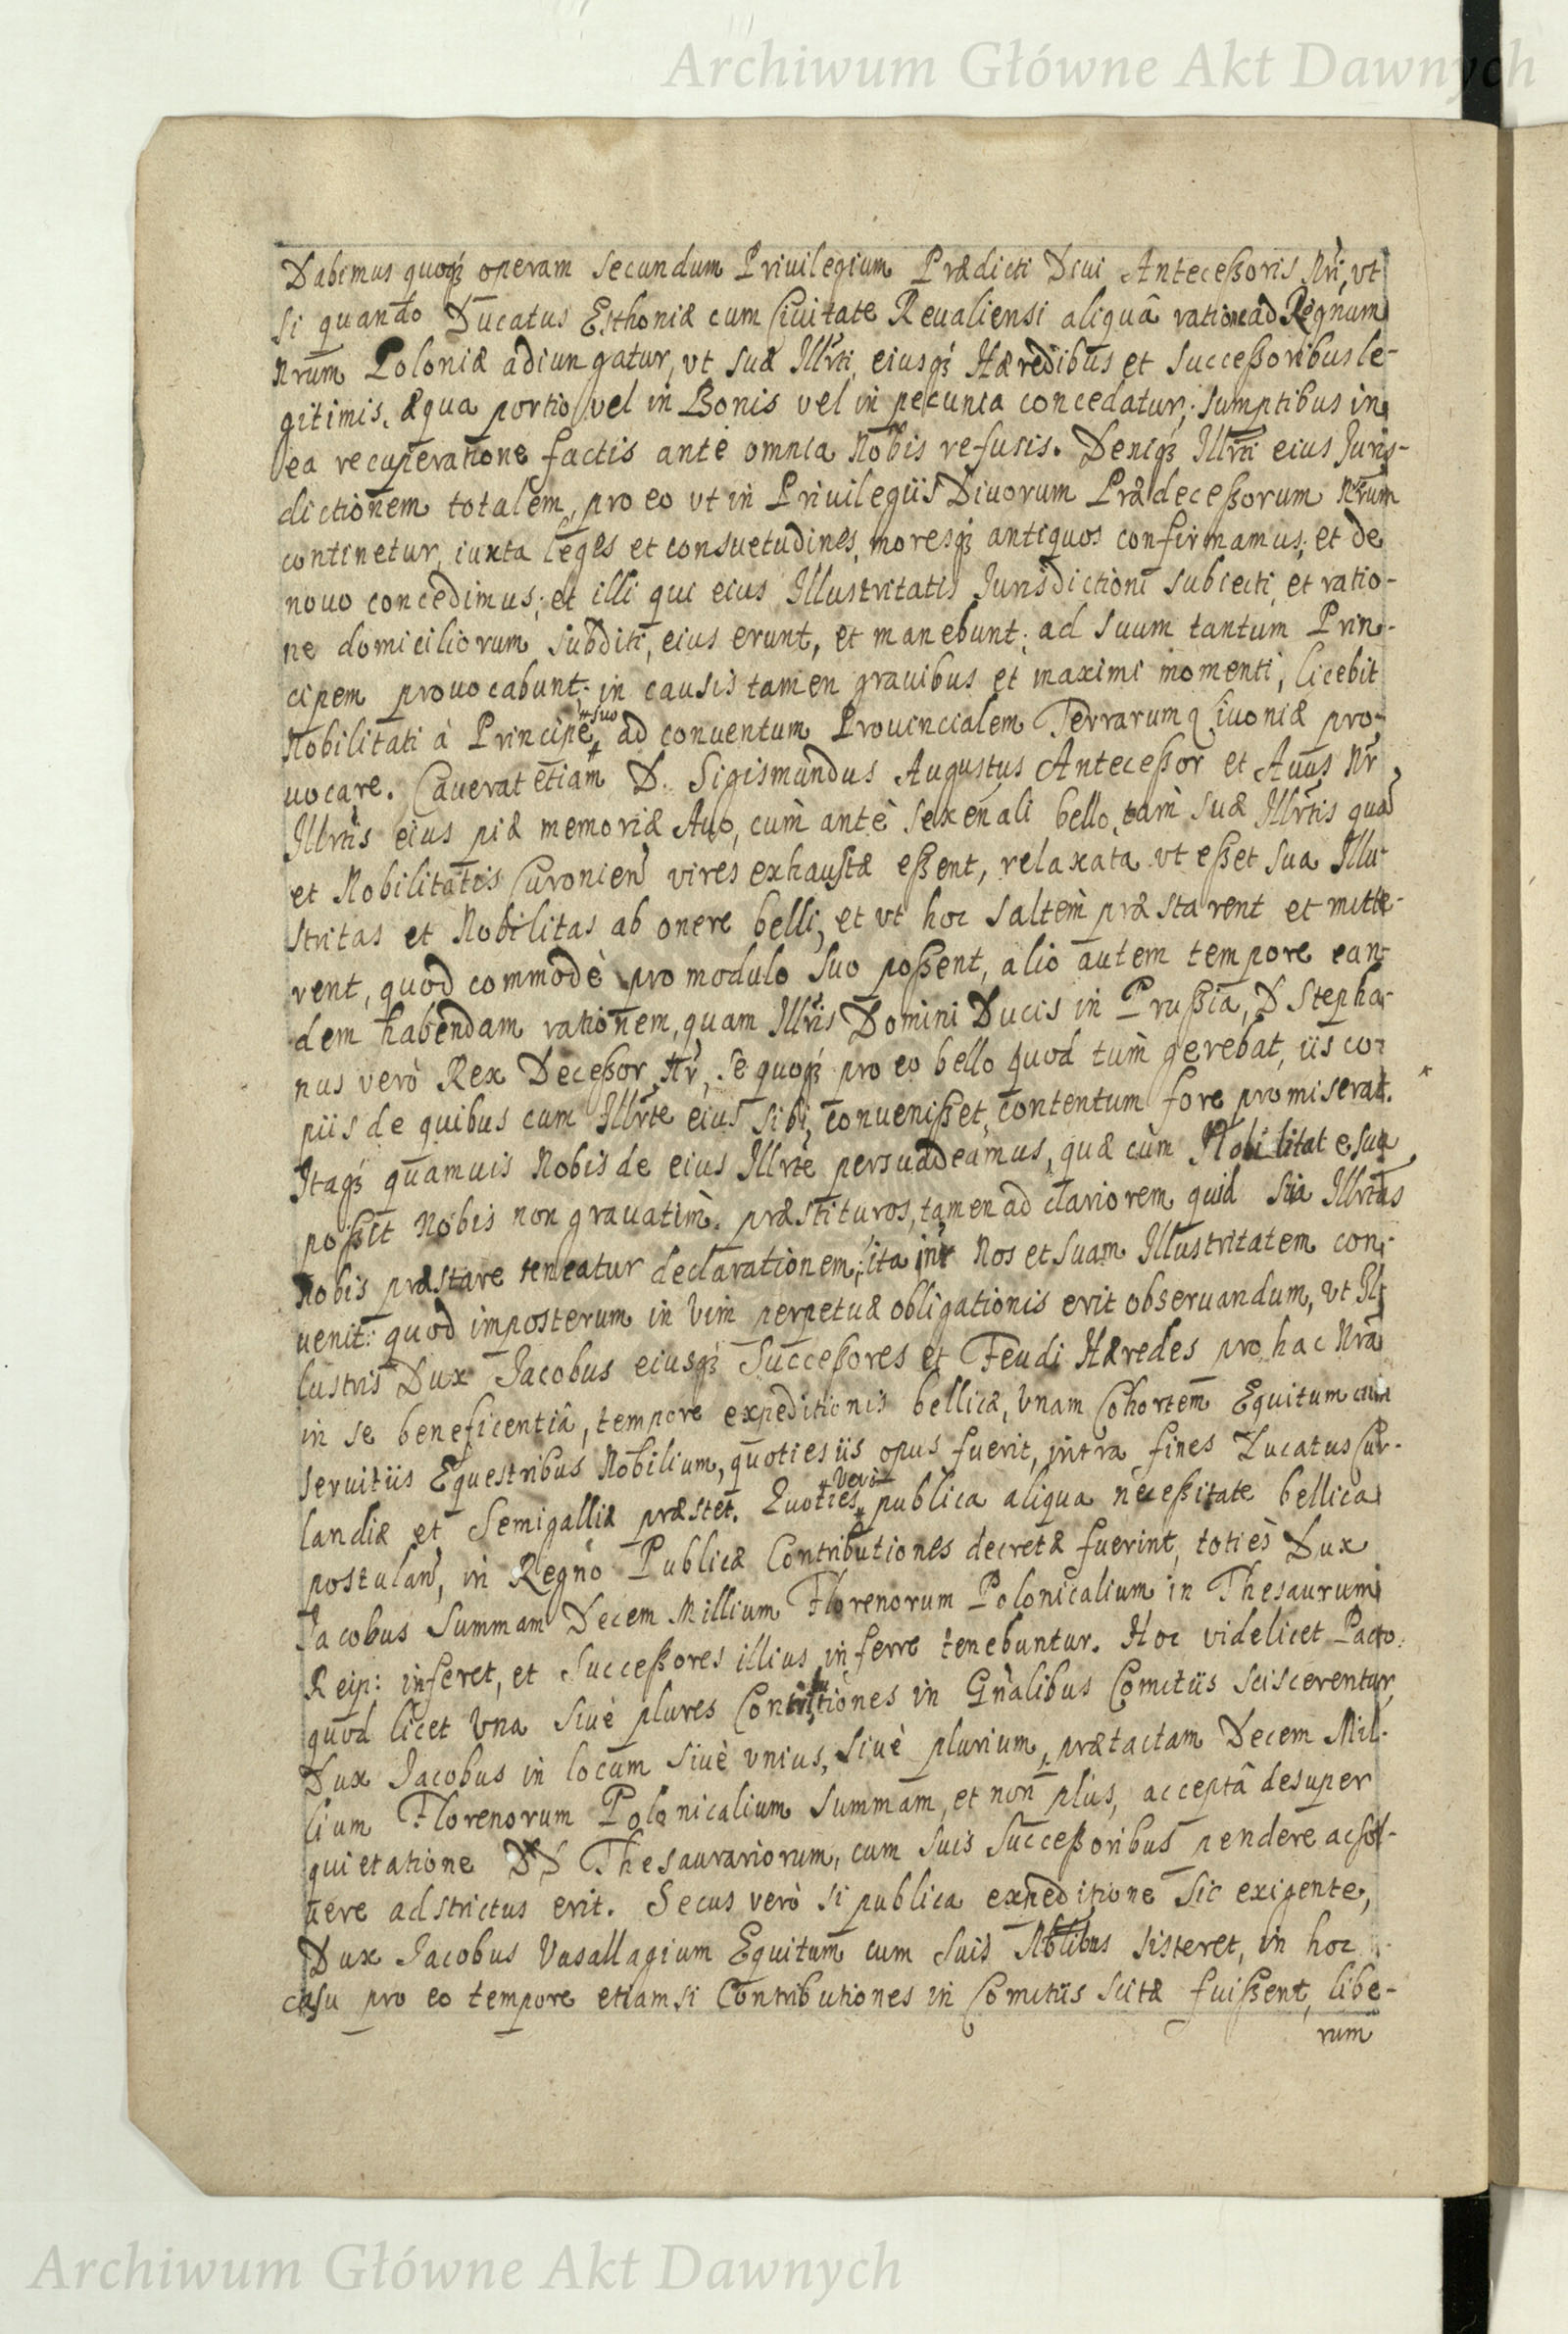 Archiwum Główne Akt Dawnych
Dabimus quoq́ꝫ operam secundum Priuilegium Prædicti Diui Anteceßoris Nri, vt
si quando Ducatus Esthoniæ cum Ciuitate Reualiensi aliquâ ratione ad Regnum
Nrum Poloniæ adiungatur, vt suæ Illrti, eiusq́ꝫ Hæredibus et Succeßoribus le-
gitimis, æqua portio vel in Bonis vel in pecunia concedatur; sumptibus in
ea recuperatione factis ante omnia Nobis refusis. Deniq́ꝫ Illrti eius Juris-
dictionem totalem, pro eo vt in Priuilegiis Diuorum Prædeceßorum Nrum
continetur, iuxta leges et consuetudines, moresq́ꝫ antiquos confirmamus, et de
nouo concedimus; et illi qui eius Illustritatis Jurisdictioni subiecti, et ratio-
ne domiciliorum subditi, eius erunt, et manebunt; ad suum tantum Prin-
cipem prouocabunt: in causis tamen grauibus et maximi momenti, licebit
Nobilitati à Principe suo ad conuentum Prouincialem Terrarum Liuoniæ pro-
uocare. Cauerat etiam D. Sigismundus Augustus Anteceßor et Auus Nr
Illrtis eius piæ memoriæ Auo, cum̀ antè sexenali bello, tam̀ suæ Illrtis quam
et Nobilitatis Curonien vires exhaustæ eßent, relaxata vt eßet sua Illu-
stritas et Nobilitas ab onere belli, et vt hoc saltem̀ præstarent et mitte-
rent, quod commodè pro modulo suo poßent, alio autem tempore ean-
dem habendam rationem, quam Illris Domini Ducis in Prußia, D Stepha-
nus verò Rex Deceßor Nr, se quoq́ꝫ pro eo bello quod tum̀ gerebat, iis co-
piis de quibus cum Illrte eius sibi conuenißet, contentum fore promiserat.
Itaq́ꝫ quamuis Nobis de eius Illrte persuadeamus, quæ cùm Nobilitate sua
poßit Nobis non grauatim̀ præstituros, tamen ad clariorem quid sua Illritas
Nobis præstare teneatur declarationem, ita intr Nos et suam Illustritatem con-
uenit: quod imposterum in vim perpetuæ obligationis erit obseruandum, vt Il-
lustris Dux Jacobus eiusq́ꝫ Succeßores et Feudi Hæredes pro hac Nra
in se beneficentiâ, tempore expeditionis bellicæ, vnam Cohortem Equitum cum
seruitiis Equestribus Nobilium, quoties iis opus fuerit, intra fines Ducatus Cur-
landiæ et Semigalliæ præstet. Quoties Verò publica aliqua neceßitate bellica
postulan, in Regno Publicæ Contributiones decretæ fuerint, totiès Dux
Jacobus Summam Decem Millium Florenorum Polonicalium in Thesaurum
Reip: inferet, et Succeßores illius inferre tenebuntur. Hoc videlicet Pacto
quod licet vna siuè plures Contributiones in Gnalibus Comitiis sciscerentur,
Dux Jacobus in locum siuè vnius, siuè plurium, prætactam Decem Mil-
lium Florenorum Polonicalium Summam, et non plus, acceptâ desuper
quietatione DD Thesaurariorum, cum suis Succeßoribus pendere ac sol-
uere adstrictus erit. Secus verò si publica expeditione sic exigente,
Dux Jacobus Vasallagium Equitum cum suis Nblibus sisteret, in hoc
casu pro eo tempore etiamsi Contributiones in Comitiis scitæ fuißent, libe-
rum
Archiwum Główne Akt Dawnych